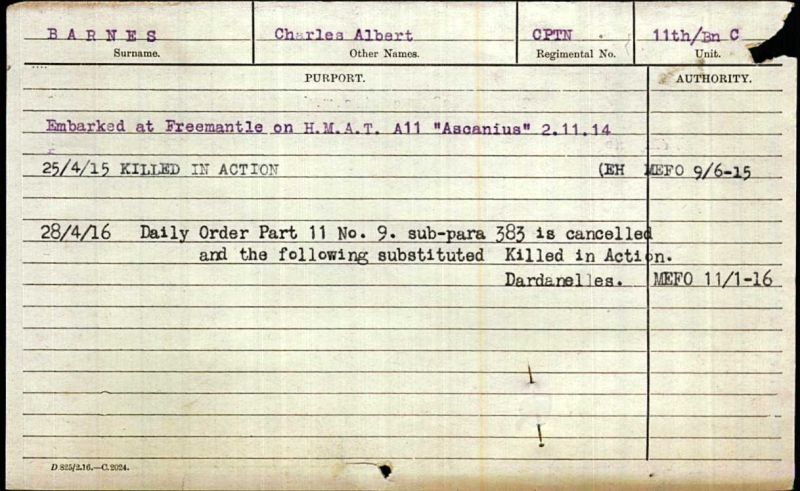 BARNES Charles Albert CPTN 11th/Bn C
Surname. Other Names. Regimental No. Unit.
PURPORT. AUTHORITY.
Embarked at Freemantle on H.M.A.T. A11 "Ascanius" 2.11.14
25/4/15 KILLED IN ACTION (EH MEFO 9/6-15
28/4/16 Daily Order Part 11 No. 9. sub-para 383 is cancelled
and the following substituted Killed in Action.
Dardanelles. MEFO 11/1-16
D 825/2.16.—C.2024.